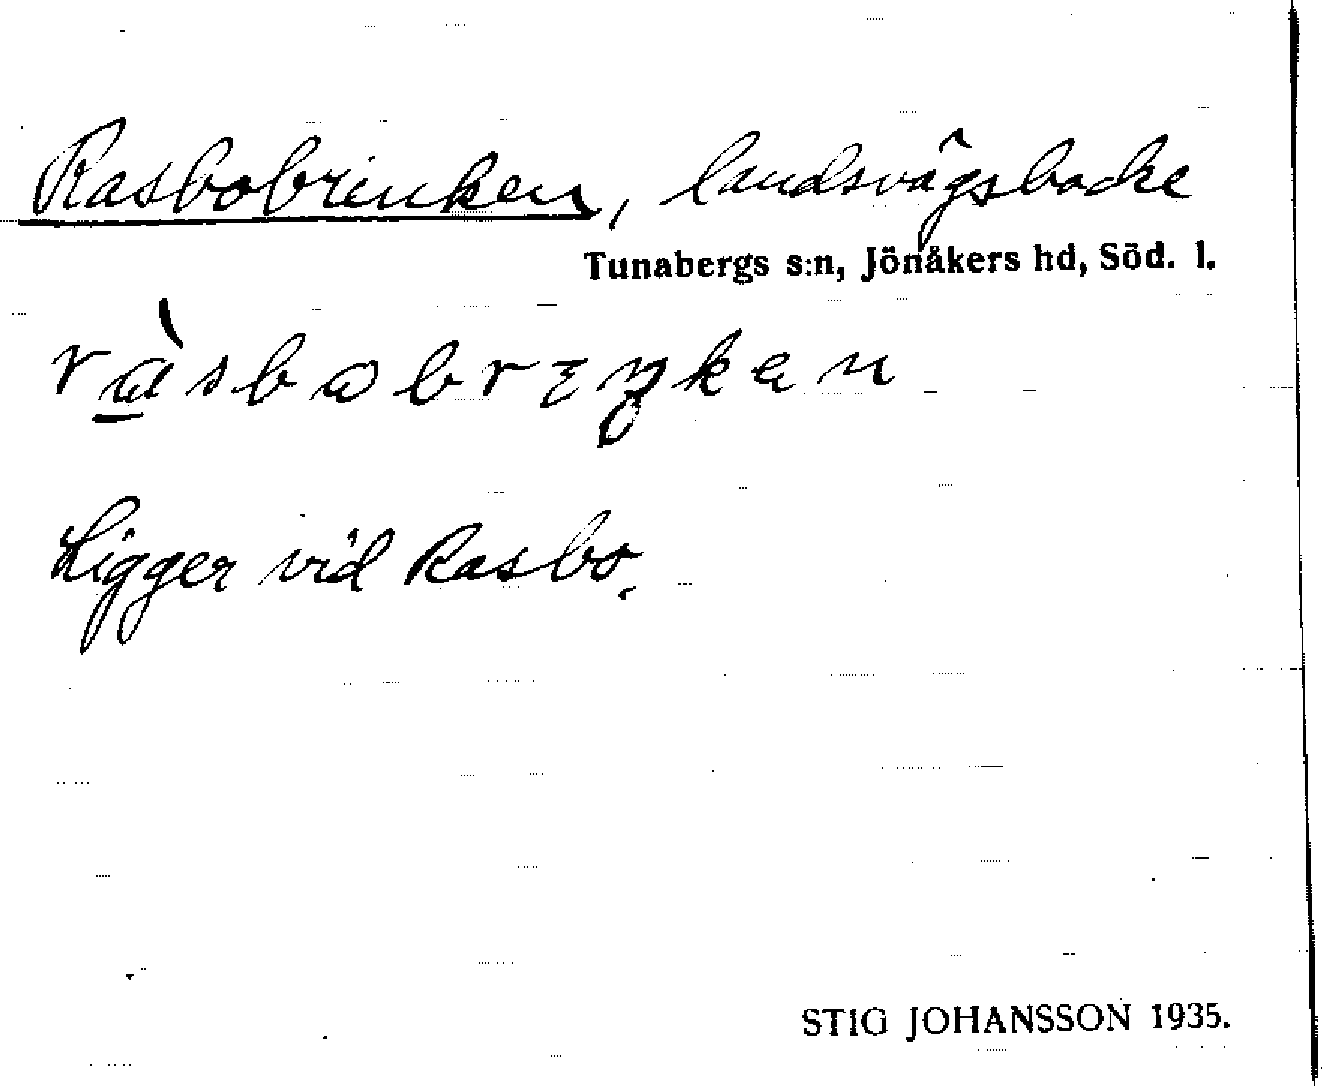 Rasbobrinken, landsvägsbacke
Tunabergs s:n, Jönåkers hd, Söd. l.
ràsbobrıŋken
Ligger vid Rasbo.
STIG JOHANSSON 1935.